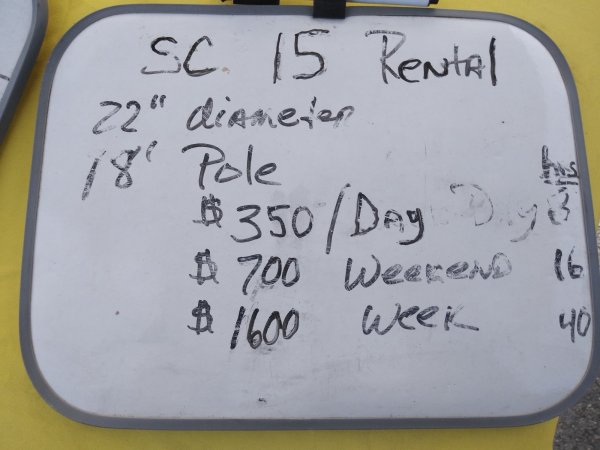 SC 15 Rental
22" diameter
18' Pole
hrs
$350/Day Day 8
$700 Weekend 16
$1600 Week 40